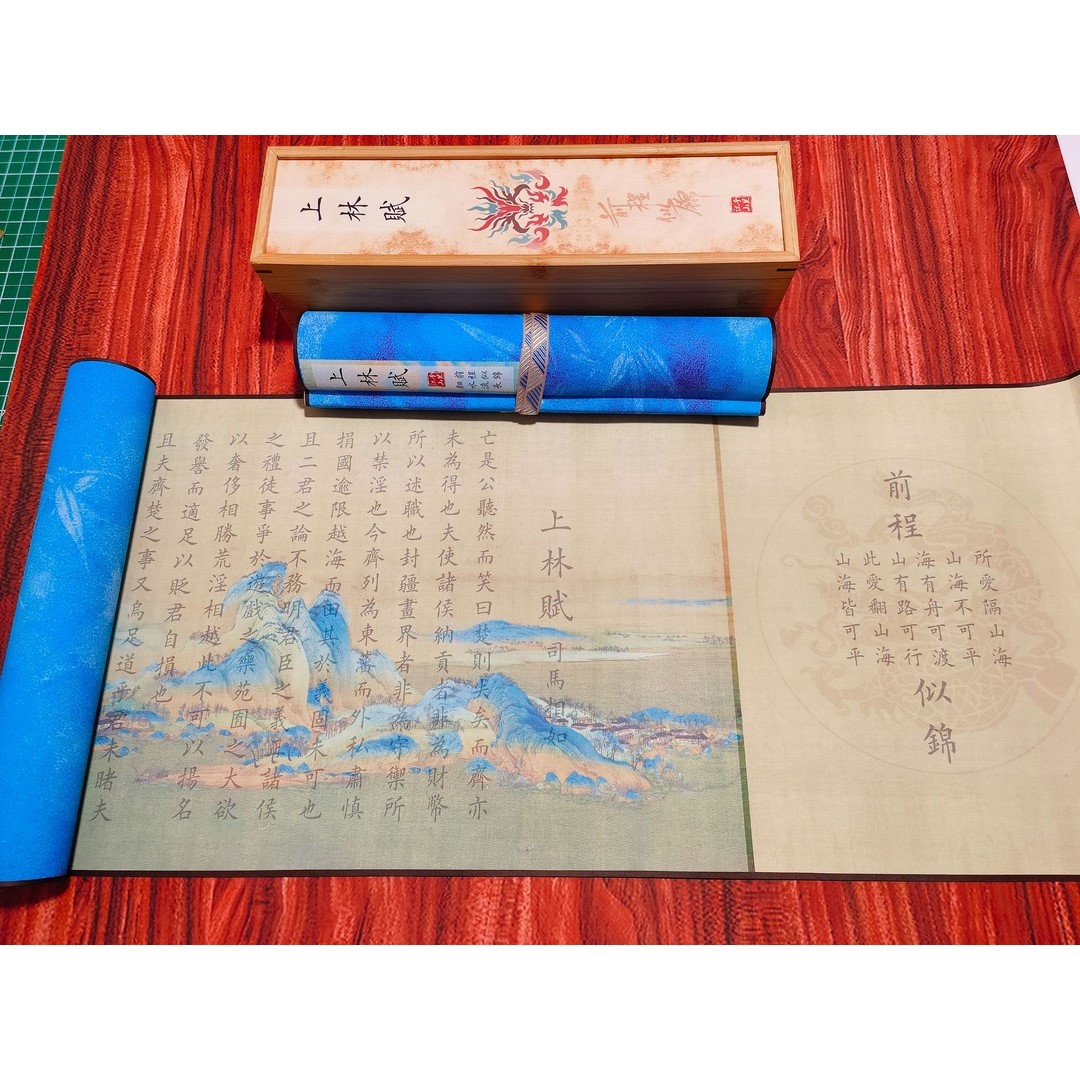 上林賦
前程似錦
上林賦
前程似錦
細水流長
前程
所愛隔山海
山海不可平
海有舟可渡
山有路可行
此愛翻山海
山海皆可平
似錦
上林賦
司馬相如
亡是公聽然而笑曰楚則失矣而齊亦
未為得也夫使諸侯納貢者非為財幣
所以述職也封疆畫界者非為守禦所
以禁淫也今齊列為東藩而外私肅慎
捐國逾限越海而田其於義固未可也
且二君之論不務明君臣之義正諸侯
之禮徒事爭於遊戲之樂苑囿之大欲
以奢侈相勝荒淫相越此不可以揚名
發譽而適足以貶君自損也
且夫齊楚之事又烏足道乎君未睹夫